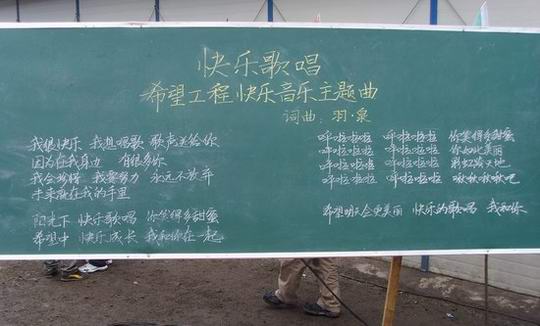 快乐歌唱
希望工程 快乐音乐主题曲
词曲：羽·泉
我很快乐 我想唱歌 歌声送给你
因为在我身边 有很多你
我会珍惜 我要努力 永远不放弃
未来就在我的手里
阳光下 快乐歌唱 你笑得多甜蜜
希望中 快乐成长 我和你在一起
呼啦啦啦 呼啦啦啦 你笑得多甜蜜
呼啦啦啦 呼啦啦啦 你如此美丽
呼啦啦啦 呼啦啦啦
呼啦啦啦 呼啦啦啦 啾啾啾啾吧
希望明天会更美丽 快乐的歌唱 我和你